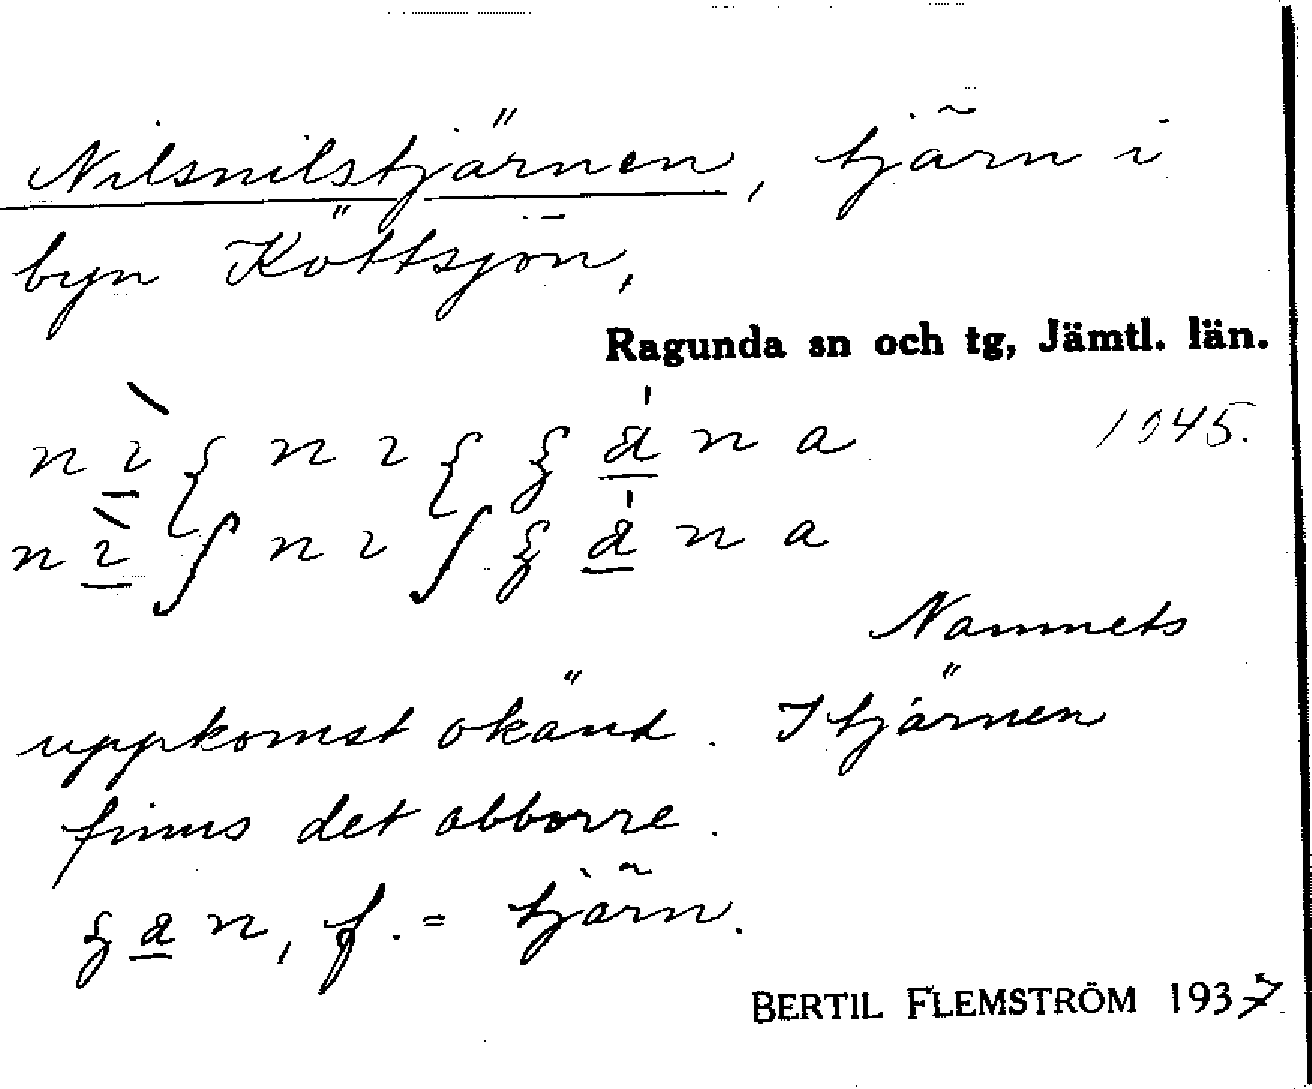 Nilsnilstjärnen, tjärn i
byn Köttsjön,
Ragunda sn och tg, Jämtl. län.
1045.
Namnets
uppkomst okänd. I tjärnen
finns det abborre.
f. = tjärn.
BERTIL FLEMSTRÖM 1937